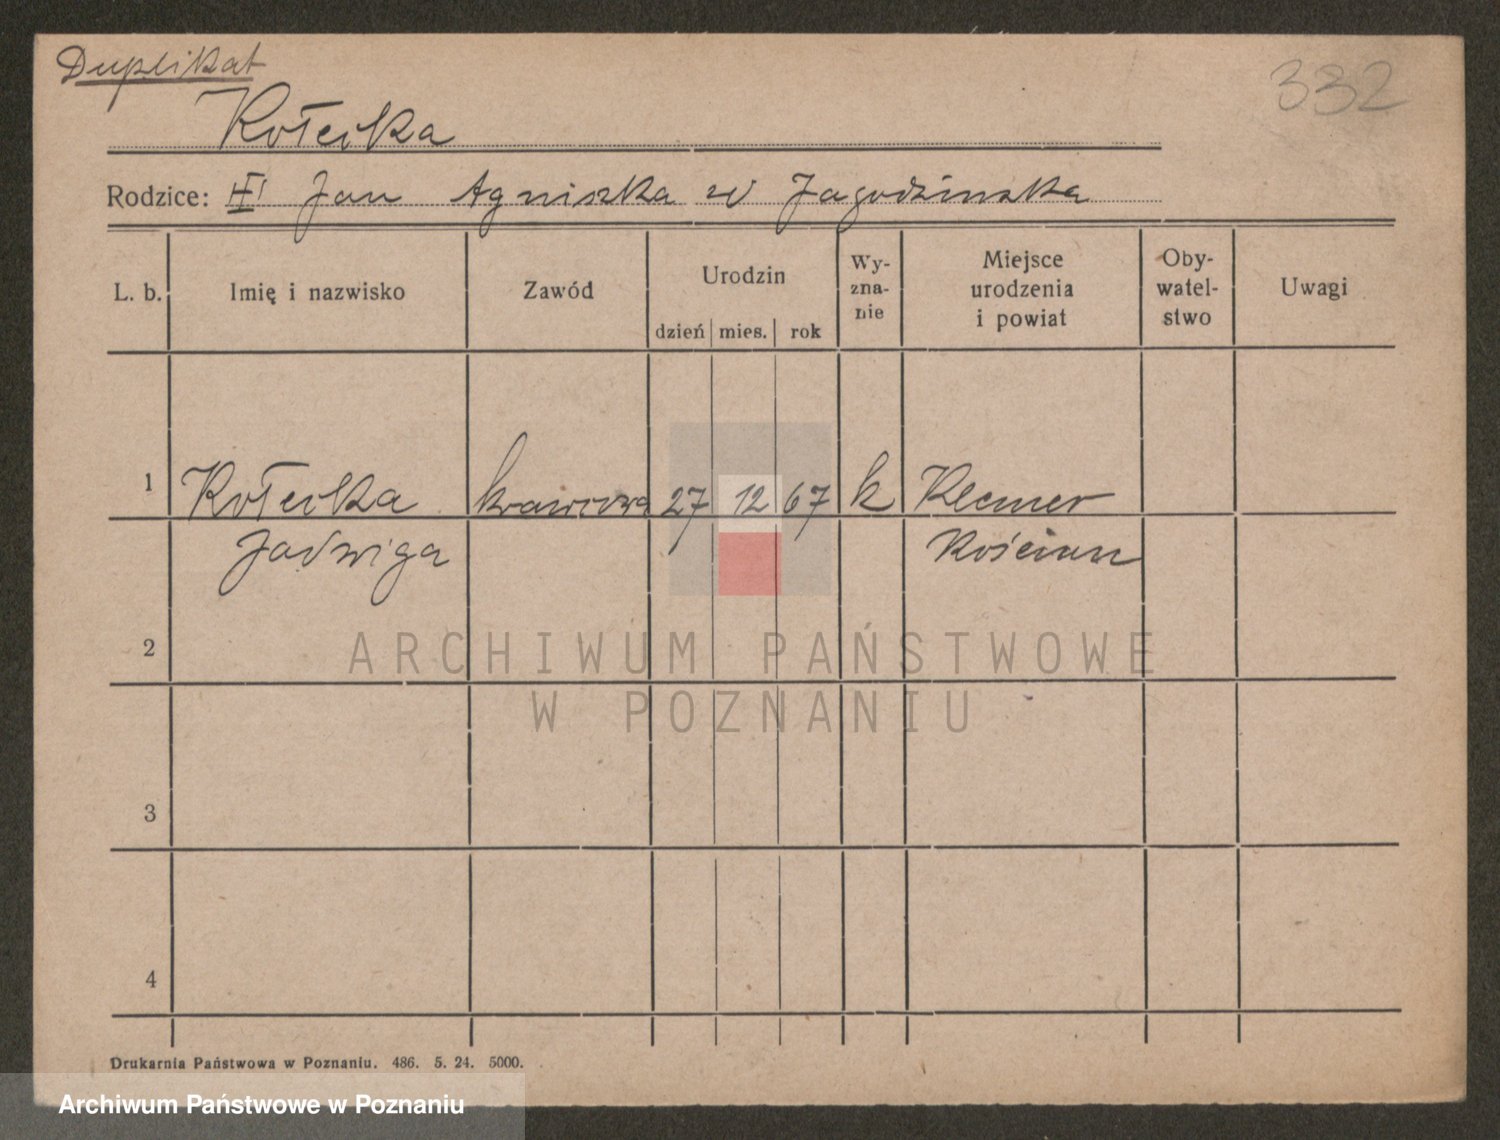 Duplikat
332
Kołecka
Rodzice: III Jan Agniszka w Jagodzinska
L. b. Imię i nazwisko Zawód Urodzin dzień mies. rok Wy-zna-nie Miejsce urodzenia i powiat Oby-watel-stwo Uwagi
1 Kołecka krawcowa 27 12 67 k
Jadwiga Kościan
2
ARCHIWUM PAŃSTWOWE
W POZNANIU
3
4
Drukarnia Państwowa w Poznaniu. 486. 5. 24. 5000.
Archiwum Państwowe w Poznaniu